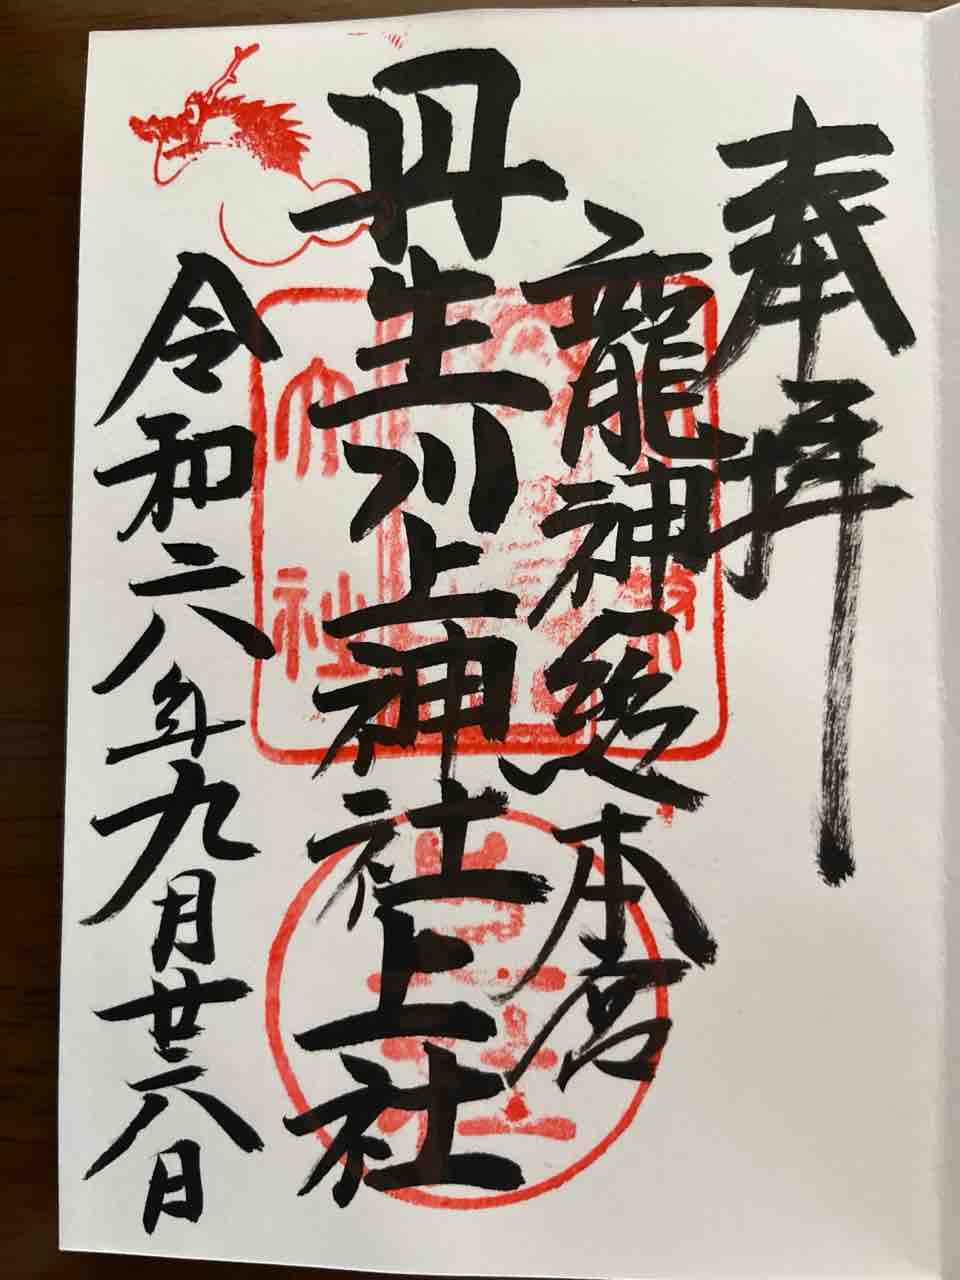 奉拝
龍神総本宮
丹生川上神社上社
令和六年九月廿六日